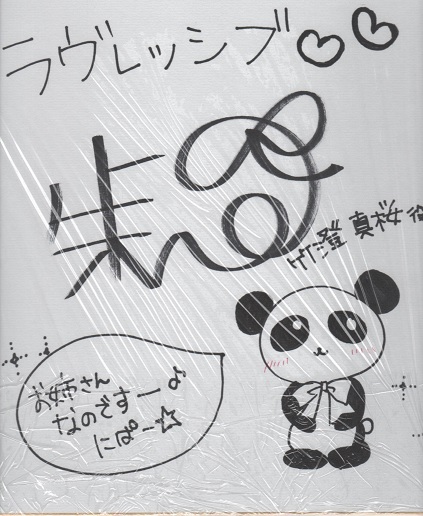 ラヴレッシブ♡♡
竹澄 真桜 役
お姉さん
なのですー♪
にぱー☆